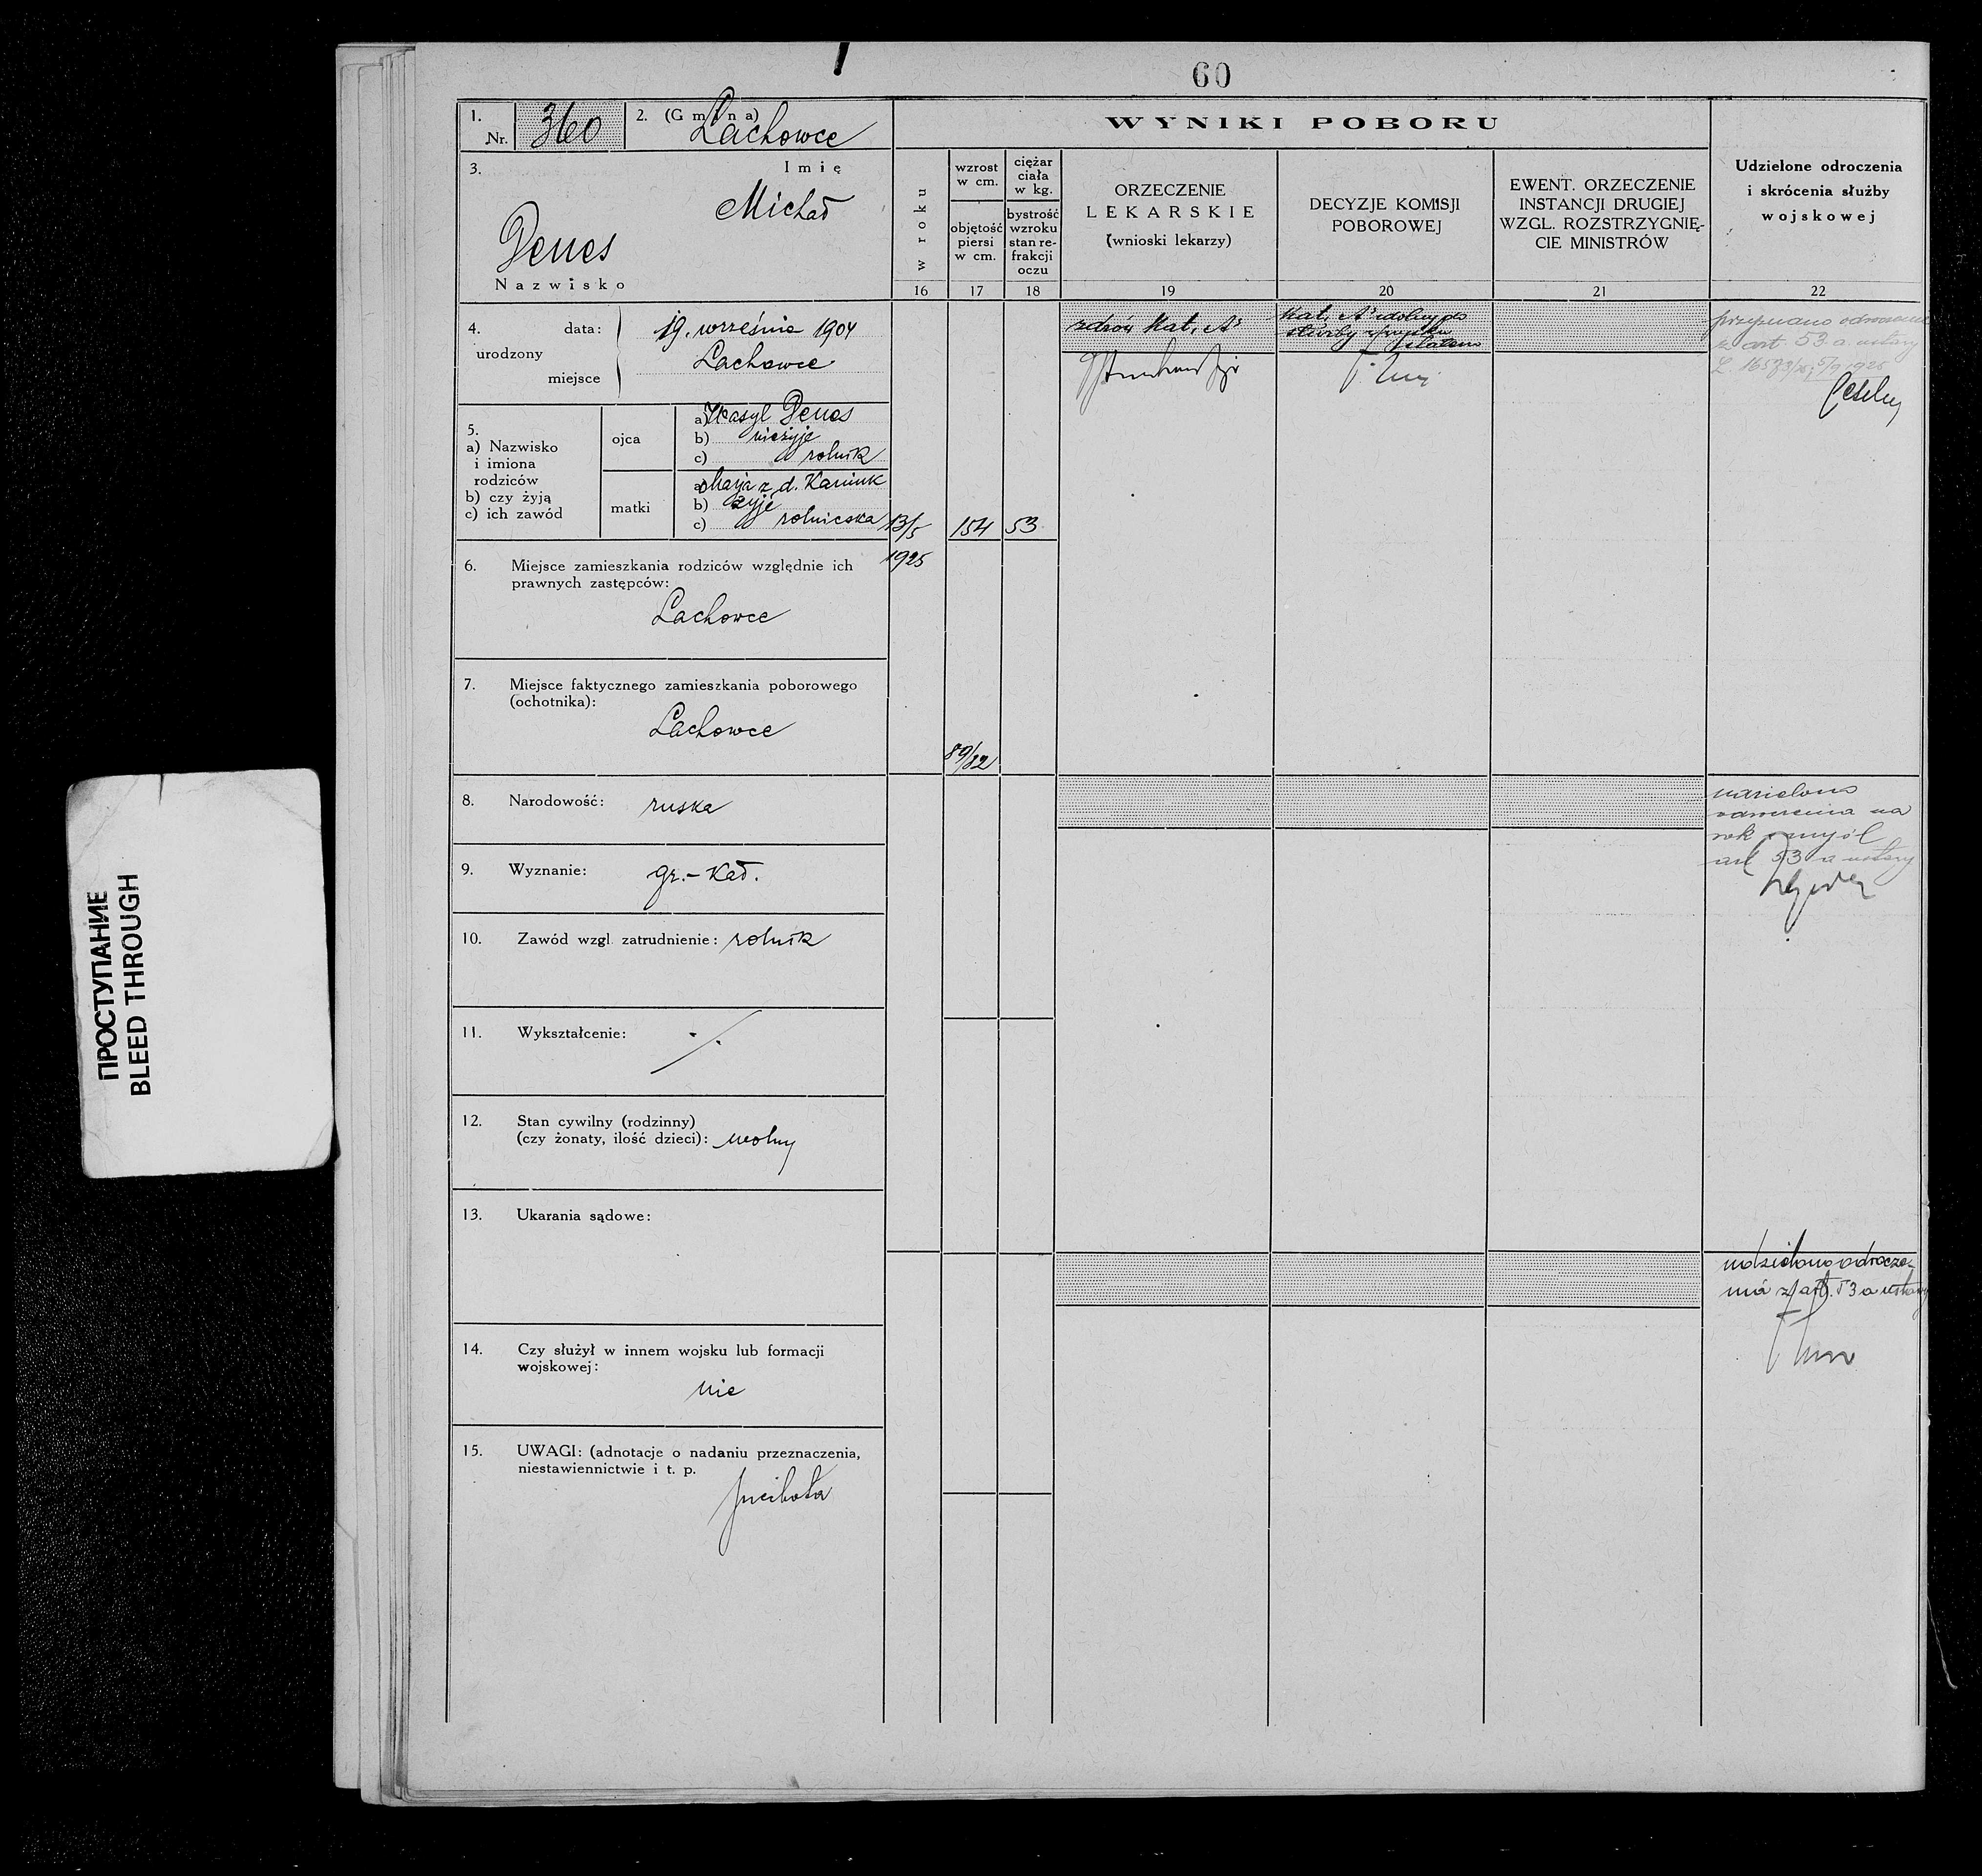 60
1.
Nr. 360
2. (Gmina) Lachowce
3.
Imię
Michał
Denes
Nazwisko
4.
urodzony
data: 19. września 1904
miejsce Lachowce
5.
a) Nazwisko
i imiona
rodziców
b) czy żyją
c) ich zawód
ojca
a) Wasyl Denes
b) nieżyje
c) rolnik
matki
a) Marja z d. Kaniuk
b) żyje
c) rolniczka
6. Miejsce zamieszkania rodziców względnie ich
prawnych zastępców:
Lachowce
7. Miejsce faktycznego zamieszkania poborowego
(ochotnika):
Lachowce
8. Narodowość: ruska
9. Wyznanie: gr.-kat.
10. Zawód wzgl. zatrudnienie: rolnik
11. Wykształcenie: ./.
12. Stan cywilny (rodzinny)
(czy żonaty, ilość dzieci): wolny
13. Ukarania sądowe:
14. Czy służył w innem wojsku lub formacji
wojskowej:
nie
15. UWAGI: (adnotacje o nadaniu przeznaczenia,
niestawiennictwie i t. p.
piechota
WYNIKI POBORU
w roku
16
wzrost
w cm.
objętość
piersi
w cm.
17
ciężar
ciała
w kg.
bystrość
wzroku
stan re-
frakcji
oczu
18
ORZECZENIE
LEKARSKIE
(wnioski lekarzy)
19
DECYZJE KOMISJI
POBOROWEJ
20
EWENT. ORZECZENIE
INSTANCJI DRUGIEJ
WZGL. ROZSTRZYGNIĘ-
CIE MINISTRÓW
21
Udzielone odroczenia
i skrócenia służby
wojskowej
22
13/5
1925
154
89/82
53
zdrów Kat. A
Kat. A zdolny do
służby
przyznano odroczenie
z art. 53 a. ustawy
1925
udzielono
odroczenia na
rok w myśl
art 53 a ustawy
udzielono odrocze-
nia z art. 53 a ustawy
ПРОСТУПАНИЕ
BLEED THROUGH